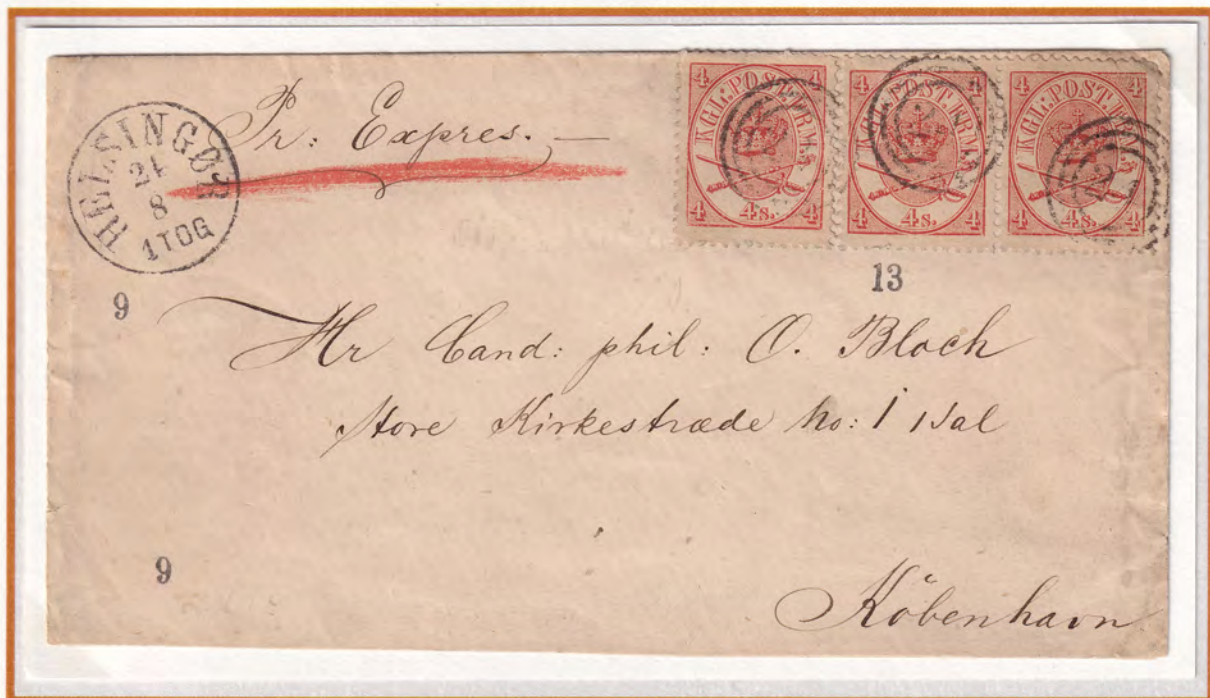 Pr: Expres. —
HELSINGØR
21
8
1 TOG
4 4
KGL. POST. FRM.
4 4s. 4
4 4
KGL. POST. FRM.
4 4s. 4
4 4
KGL. POST. FRM.
4 4s. 4
13
9
Hr Cand: phil: O. Bloch
Store Kirkestræde No: 1 1 Sal
9
København